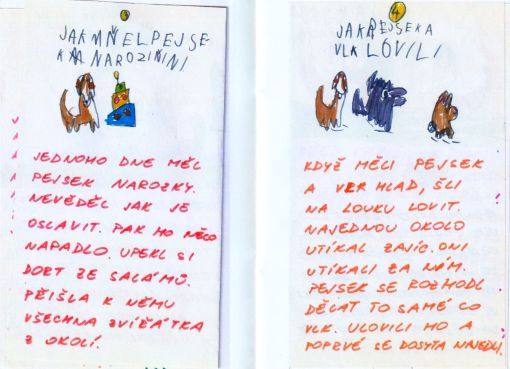 JAK MNĚL PEJSE
K NAROZINI
JEDNOHO DNE MĚL
PEJSEK NAROZKY.
NEVĚDĚL JAK JE
OSLAVIT. PAK HO NĚCO
NAPADLO. UPEKL SI
DORT ZE SALÁMŮ.
PŘIŠLA K NĚMU
VŠECHNA ZVÍŘÁTKA
Z OKOLÍ.
4
JAK PEJSEK A
VLK LOVILI
KDYŽ MĚLI PEJSEK
A VLK HLAD, ŠLI
NA LOUKU LOVIT.
NAJEDNOU OKOLO
UTÍKAL ZAJÍC. ONI
UTÍKALI ZA NÁM.
PEJSEK SE ROZHODL
DĚLAT TO SAMÉ CO
VLK. ULOVILI HO A
POPRVÉ SE DOSYTA NAJEDLI.